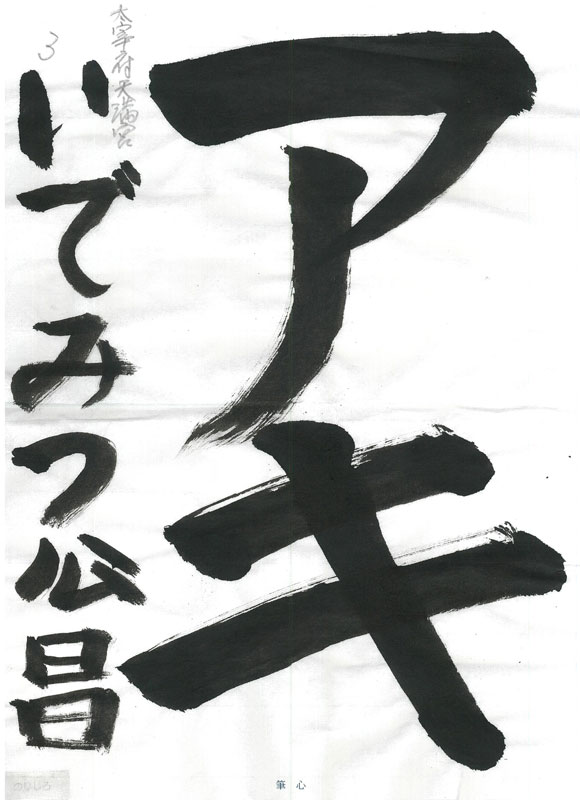 アキ
太宰府天満宮
3
いでみつ公昌
筆心
のりしろ